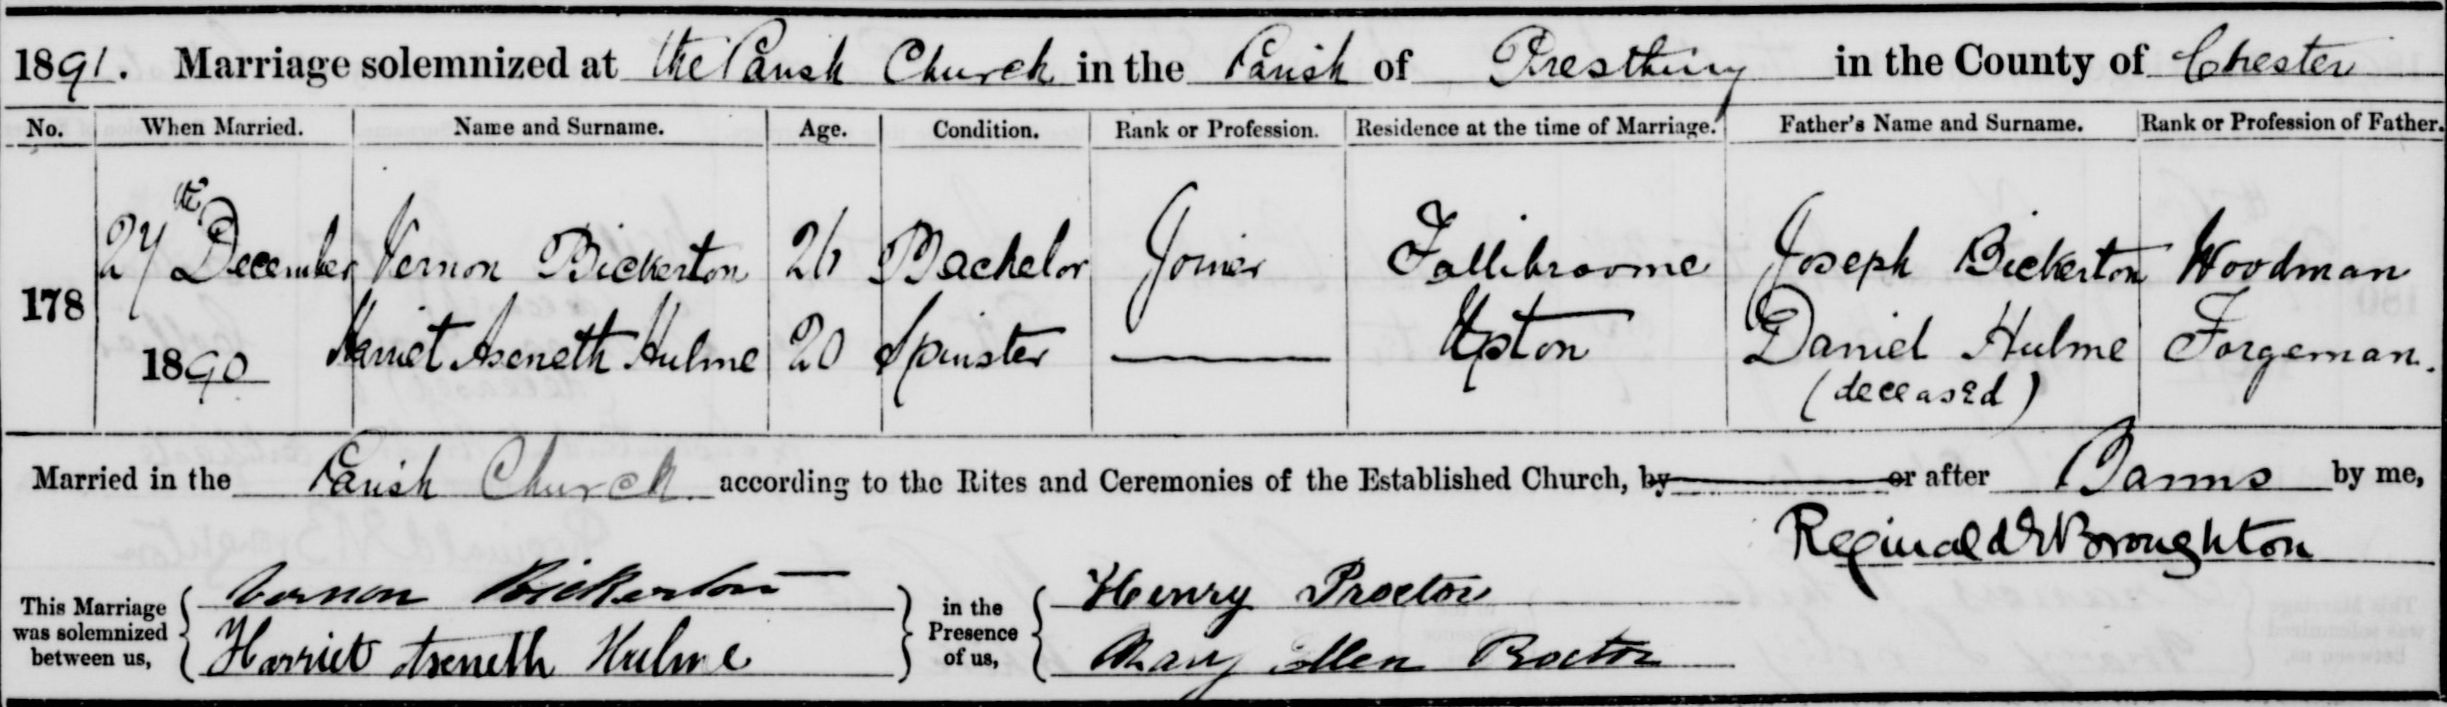 1891. Marriage solemnized at the Parish Church in the Parish of Prestbury in the County of Chester
No. When Married. Name and Surname. Age. Condition. Rank or Profession. Residence at the time of Marriage. Father's Name and Surname. Rank or Profession of Father.
178
27th December Vernon Bickerton 26 Bachelor Joiner Fallibroome Joseph Bickerton Woodman
1890 Harriet Aseneth Hulme 20 Spinster Upton Daniel Hulme Forgeman.
(deceased)
Married in the Parish Church according to the Rites and Ceremonies of the Established Church, by or after Banns by me,
Reginald Broughton
This Marriage was solemnized between us, Vernon Bickerton in the Presence of us, Henry Proctor
Harriet Aseneth Hulme Mary Ellen Proctor